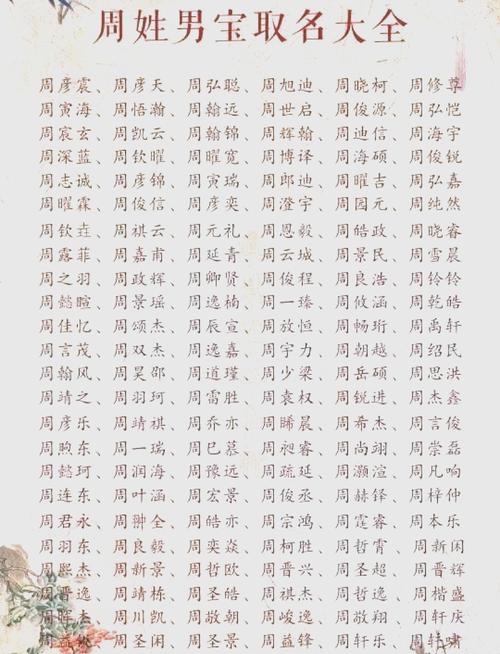 周姓男宝取名大全
周彦震、周彦天、周弘聪、周旭迪、周晓柯、周修尊
周寅海、周悟瀚、周翰远、周世启、周俊源、周弘恺
周宸玄、周凯云、周翰锦、周辉翰、周迪信、周海宇
周深蓝、周钦曜、周曜宽、周博译、周海硕、周俊锐
周志诚、周彦锦、周寅瑞、周郎迪、周曜吉、周弘嘉
周曜霖、周俊信、周彦奕、周澄宇、周园元、周纯然
周钦垚、周祺云、周元礼、周恩毅、周皓政、周晓睿
周露菲、周嘉甫、周延青、周云城、周景民、周雪晨
周之羽、周政辉、周卿贤、周俊程、周良浩、周铃铃
周懿暄、周景瑶、周逸楠、周一臻、周攸涵、周乾皓
周佳忆、周颂杰、周辰宣、周放恒、周畅珩、周禹轩
周言茂、周双杰、周逸嘉、周宇力、周朝越、周绍民
周翰风、周昊邵、周道瑾、周少梁、周岳硕、周思洪
周靖之、周羽珂、周雷胜、周袁权、周锐进、周杰鑫
周彦乐、周靖祺、周乔亦、周睎晨、周希杰、周言俊
周煦东、周一瑞、周巳慕、周昶睿、周尚翊、周崇磊
周懿珂、周润海、周豫远、周疏延、周灏渲、周凡响
周连东、周叶涵、周宏景、周俊丞、周赫铎、周梓仲
周君永、周翀全、周皓亦、周宗鸿、周霆睿、周本乐
周羽东、周良毅、周奕焱、周柯胜、周哲霄、周新闲
周熙杰、周新景、周哲欧、周晋兴、周圣超、周晋辉
周晋逸、周靖栋、周圣皓、周祺杰、周哲逸、周楷盛
周晖杰、周川凯、周敬朝、周峻逸、周敬翔、周轩庆
周益、周圣闲、周圣景、周益锋、周轩乐、周轩啸